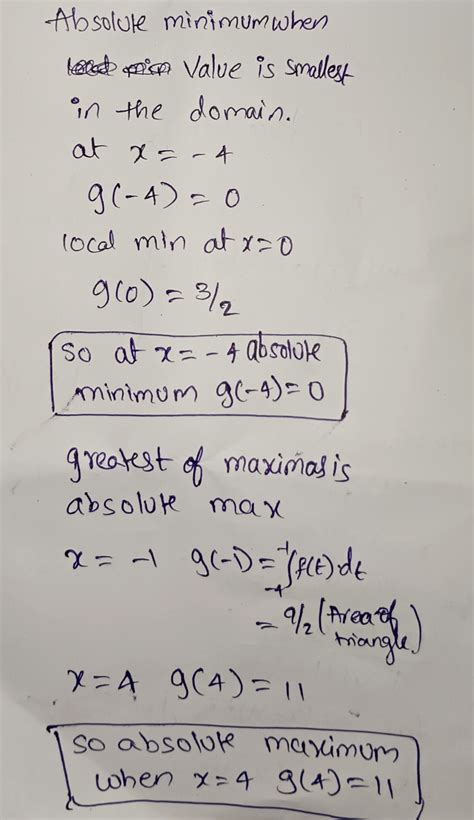 Absolute minimum when
value is smallest
in the domain.
at x = -4
g(-4) = 0
local min at x=0
g(0) = 3/2
so at x = -4 absolute
minimum g(-4)=0
greatest of maximas is
absolute max
x = -1 g(-1) = ∫₋₄⁻¹ f(t) dt
= 9/2 (Area of
triangle)
x = 4 g(4) = 11
so absolute maximum
when x=4 g(4)=11